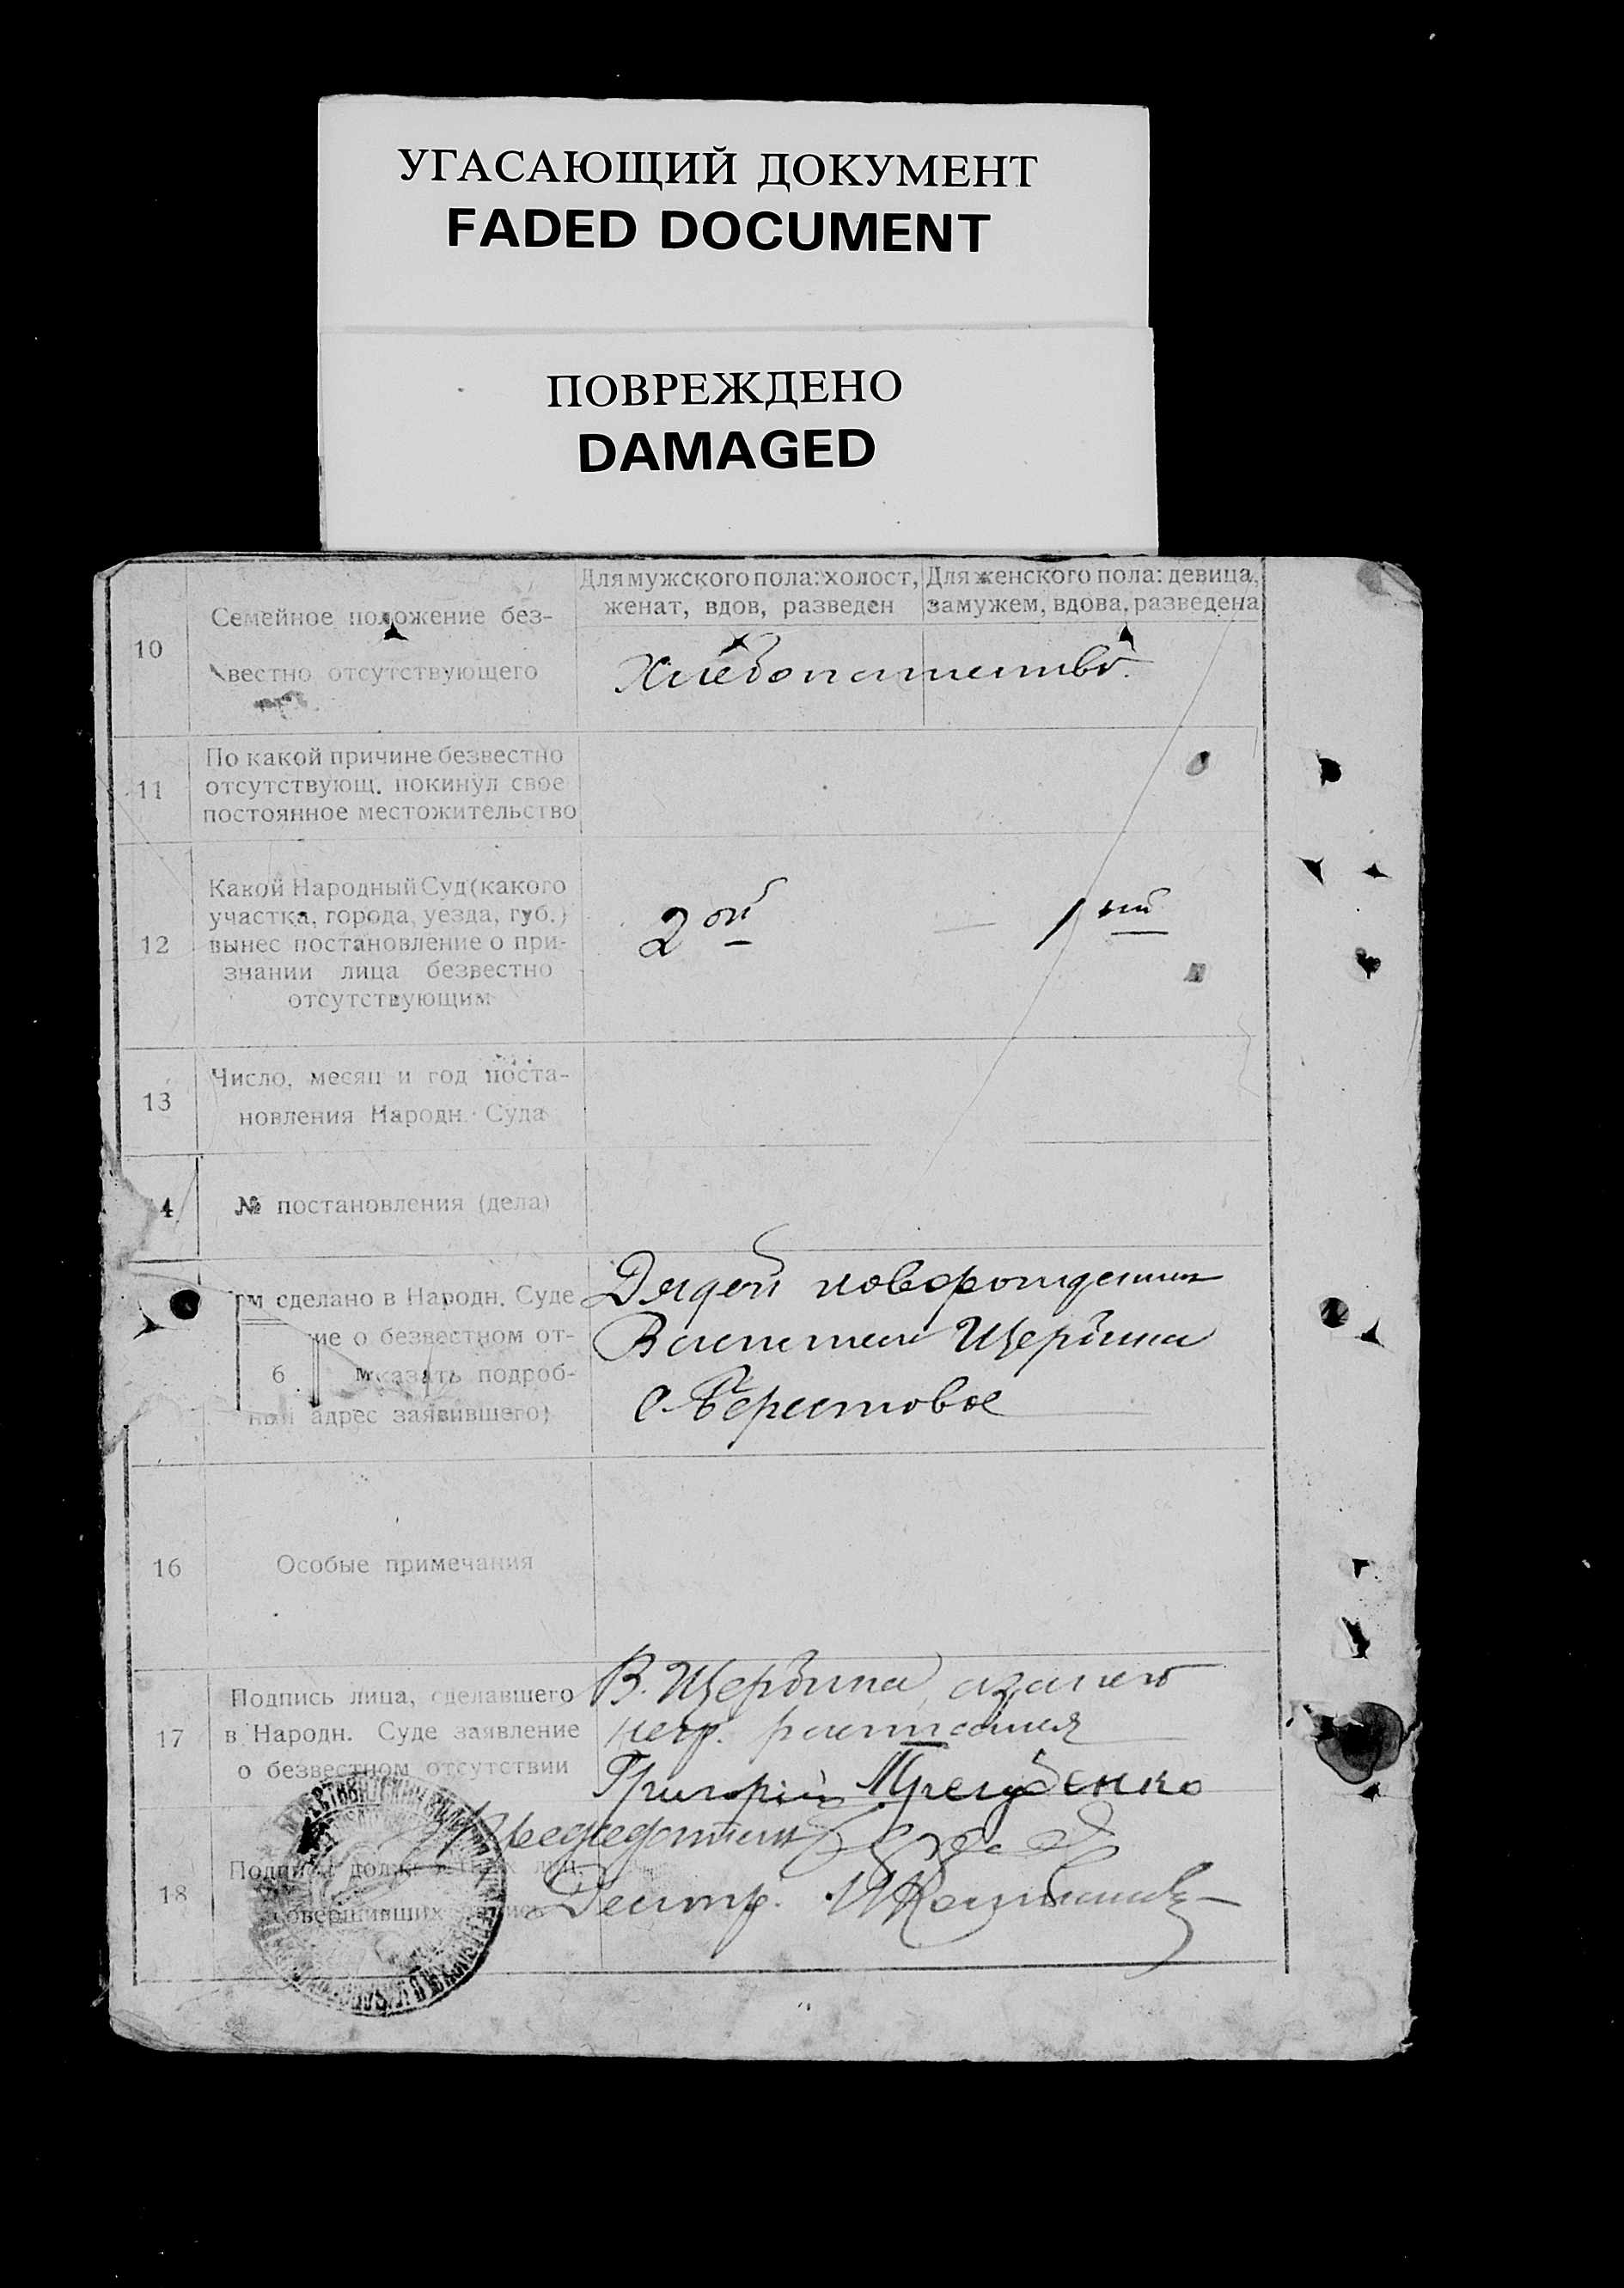 УГАСАЮЩИЙ ДОКУМЕНТ
FADED DOCUMENT
ПОВРЕЖДЕНО
DAMAGED
Для мужского пола: холост,
женат, вдов, разведен
Для женского пола: девица,
замужем, вдова, разведена
10
Семейное положение без-
вестно отсутствующего
Хлебопашество.
11
По какой причине безвестно
отсутствующ. покинул свое
постоянное местожительство
12
Какой Народный Суд (какого
участка, города, уезда, губ.)
вынес постановление о при-
знании лица безвестно
отсутствующим
2ой 1ый
13
Число, месяц и год поста-
новления Народн. Суда
4
№ постановления (дела)
м сделано в Народн. Суде
ие о безвестном от-
6 казать подроб-
ный адрес заявившего)
Дядей
Щербина
с. Берестовое
16
Особые примечания
17
Подпись лица, сделавшего
в Народн. Суде заявление
о безвестном отсутствии
В. Щербина, а за него
негр.
Григорій
18
совершивших